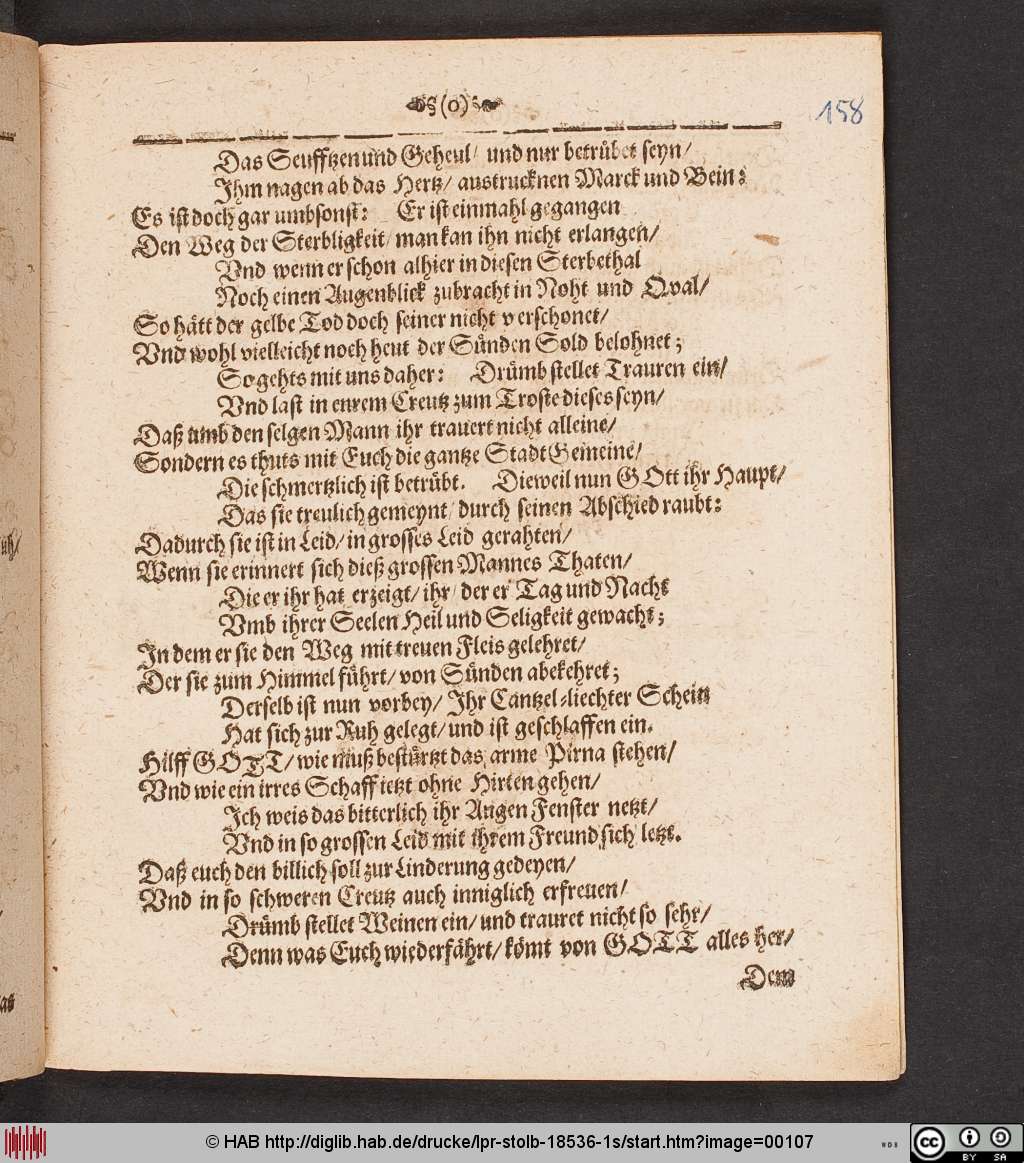 §(o)§
158
Das Seufftzen und Geheul/ und nur betrübet seyn/
Ihm nagen ab das Hertz/ austrucknen Marck und Bein:
Es ist doch gar umbsonst: Er ist einmahl gegangen
Den Weg der Sterbligkeit/ man kan ihn nicht erlangen/
Vnd wenn er schon alhier in diesen Sterbethal
Noch einen Augenblick zubracht in Noht und Qval/
So hätt der gelbe Tod doch seiner nicht verschonet/
Vnd wohl vielleicht noch heut der Sünden Sold belohnet;
So gehts mit uns daher: Drümb stellet Trauren ein/
Vnd last in eurem Creutz zum Troste dieses seyn/
Daß umb den selgen Mann ihr trauert nicht alleine/
Sondern es thuts mit Euch die gantze Stadt Gemeine/
Die schmertzlich ist betrübt. Dieweil nun GOtt ihr Haupt/
Das sie treulich gemeynt/ durch seinen Abschied raubt:
Dadurch sie ist in Leid/ in grosses Leid gerahten/
Wenn sie erinnert sich dieß grossen Mannes Thaten/
Die er ihr hat erzeigt/ ihr/ der er Tag und Nacht
Vmb ihrer Seelen Heil und Seligkeit gewacht;
In dem er sie den Weg mit treuen Fleis gelehret/
Der sie zum Himmel führt/ von Sünden abekehret;
Derselb ist nun vorbey/ Ihr Cantzel-liechter Schein
Hat sich zur Ruh gelegt/ und ist geschlaffen ein.
Hilff GOTT/ wie muß bestürtzt das arme Pirna stehen/
Vnd wie ein irres Schaff ietzt ohne Hirten gehen/
Ich weis das bitterlich ihr Augen Fenster netzt/
Vnd in so grossen Leid mit ihrem Freund sich letzt.
Daß euch den billich soll zur Linderung gedeyen/
Vnd in so schweren Creutz auch inniglich erfreuen/
Drümb stellet Weinen ein/ und trauret nicht so sehr/
Denn was Euch wiederfährt/ kömt von GOTT alles her/
Dem
© HAB http://diglib.hab.de/drucke/lpr-stolb-18536-1s/start.htm?image=00107
WDB
cc BY SA